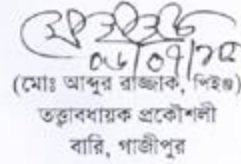 ০৮/০৭/২৫
(মোঃ আব্দুর রাজ্জাক, পিইঞ্জ)
তত্ত্বাবধায়ক প্রকৌশলী
বারি, গাজীপুর